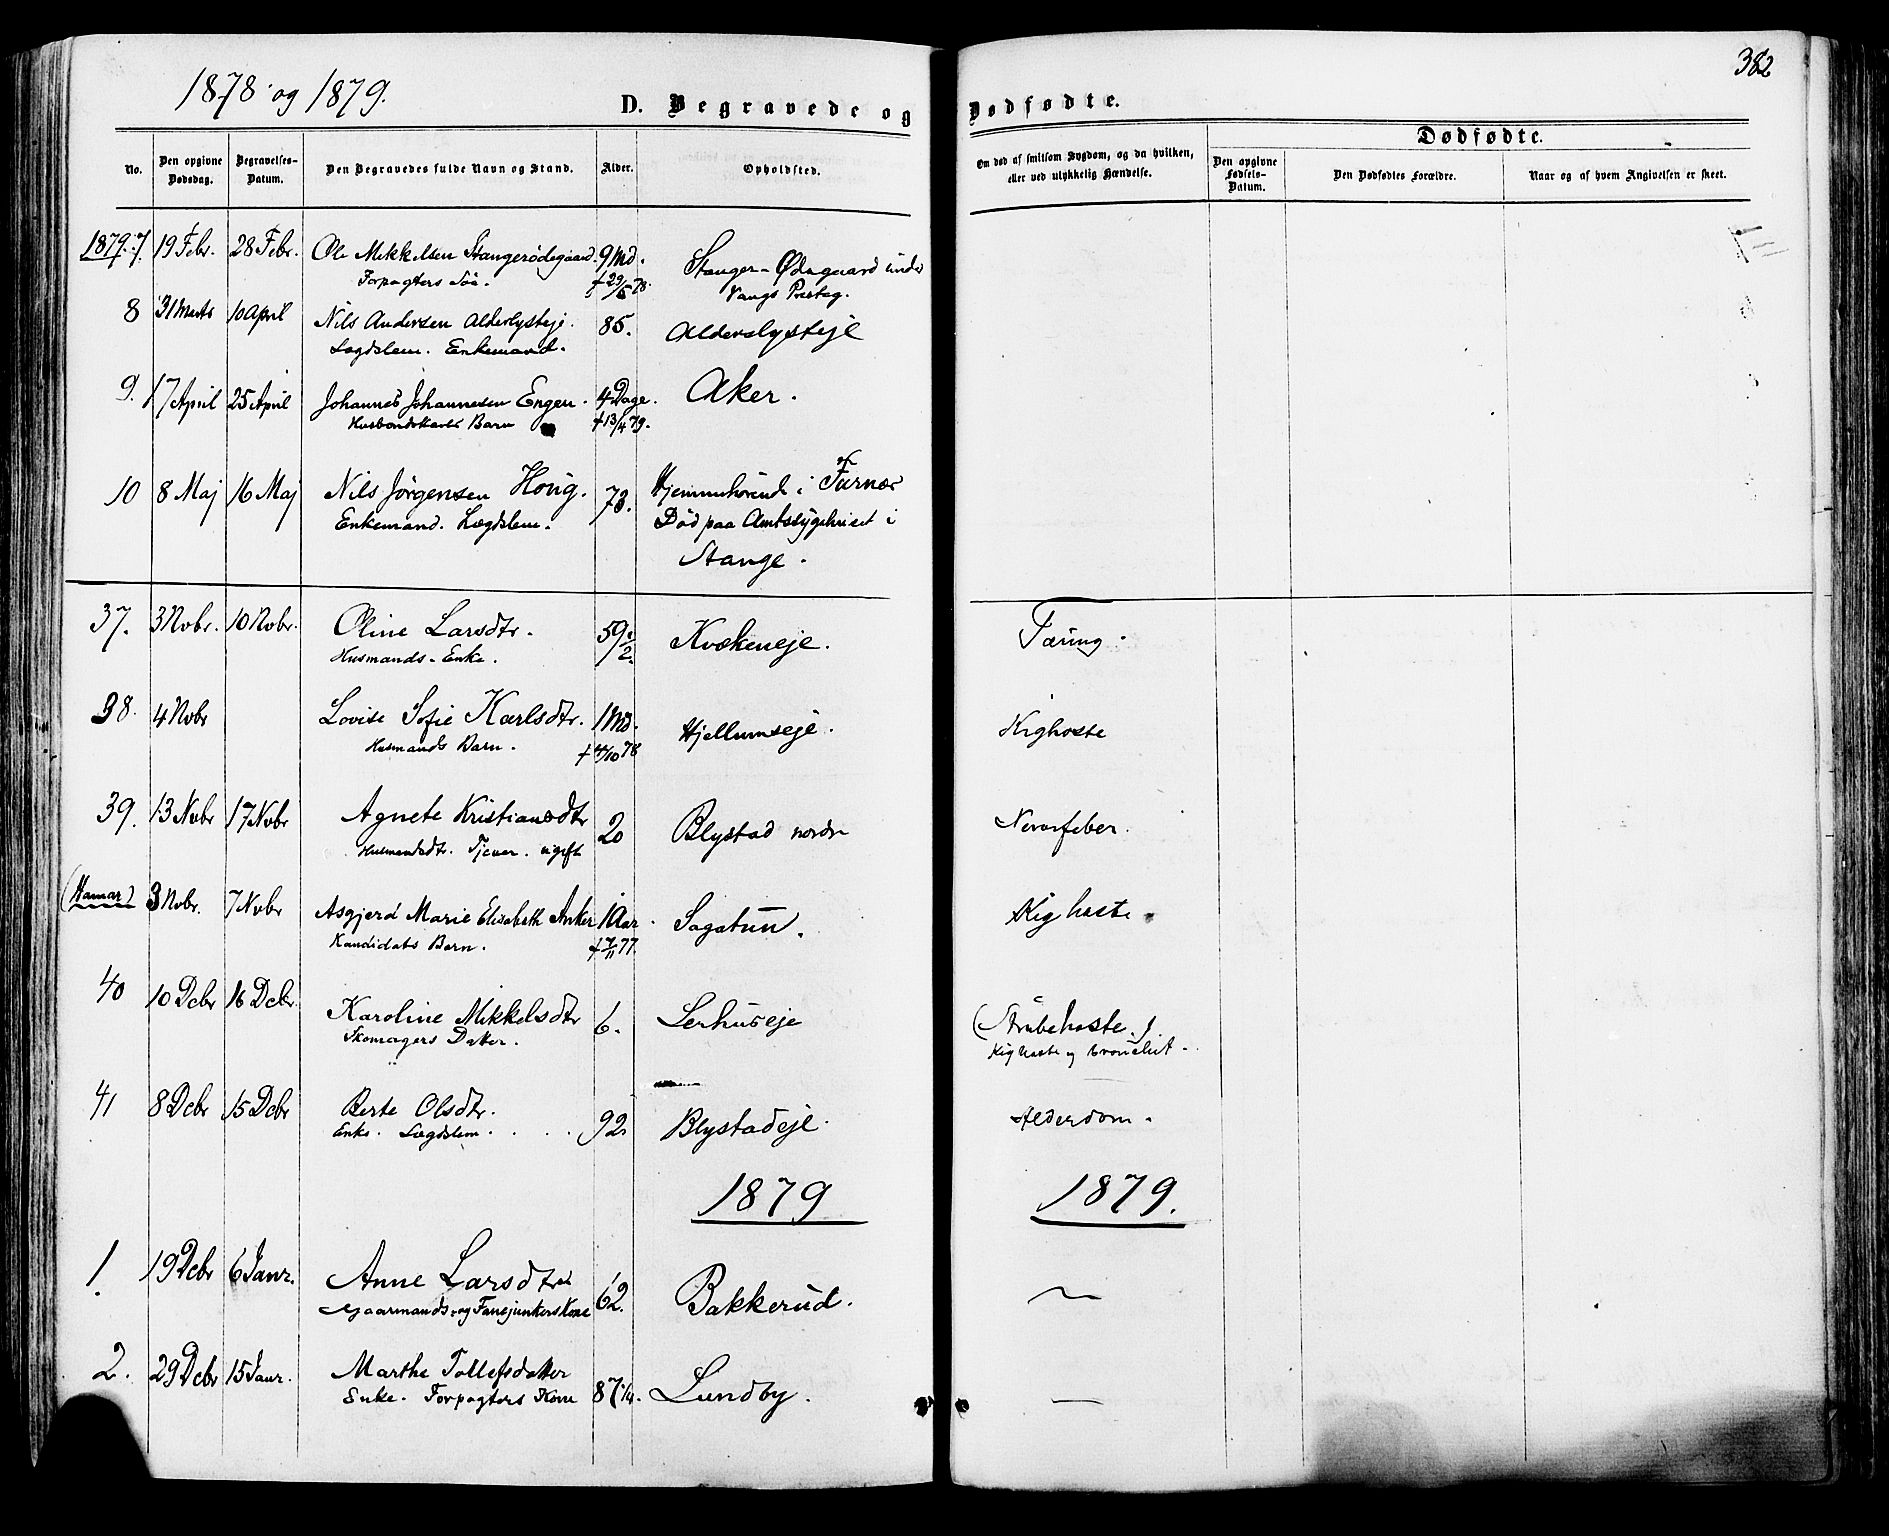 382
1878 og 1879.
D. Begravede og Dødfødte.
Dødfødte.
No.
Den opgivne Dødsdag.
Begravelses-Datum.
Den Begravedes fulde Navn og Stand.
Alder.
Opholdsted.
Om død af smitsom Sygdom, og da hvilken, eller ved ulykkelig Hændelse.
Den opgivne Fødsels-Datum.
Den Dødfødtes Forældre.
Naar og af hvem Angivelsen er skeet.
1879. 7. 19 Febr. 28 Febr. Ole Mikkelsen Stangerødegaard. 9 Md. Stanger-Ødegaard under
Forpagters Søn. f 29/5 78. Vangs Presteg.
8 31 Marts 10 April Nils Andersen Alderlysteje. 85. Alderslysteje
Lægdslem. Enkemand.
9. 17 April 25 April Johannes Johannesen Engen. 4 Dage. Aker.
Husbondskarls Barn f 13/4 79.
10 8 Maj 16 Maj Nils Jørgensen Hong. 73. Hjemmehørend i Furnes
Enkemand. Lægdslem. Død paa Amtssygehuset i
Stange.
37. 3 Novbr. 10 Novbr. Oline Larsdtr. 59 1/2. Kvækeneje. Tæring.
Husmands-Enke.
38. 4 Novbr Lovise Sofie Karlsdtr. 1 Md. Hjellumseje. Kighoste
Husmands Barn. f 4/10 78
39. 13 Novbr 17 Novbr Agnete Kristiansdtr 20 Blystad nordre Nervefeber.
Husmandsdtr. Tjener. ugift
(Hamar) 3 Novbr. 7 Novbr Asgjerd Marie Elisabeth Anker 1 Aar. Sagatun. Kighoste.
Kandidats Barn. f 7/11 77.
40 10 Decbr 16 Decbr Karoline Mikkelsdtr 6. Lerhuseje (Strubehoste.)
Skomagers Datter. Kighoste og bronchit.
41 8 Decbr 15 Decbr Berte Olsdtr. 92. Blystadeje. Alderdom.
Enke. Lægdslem.
1879 1879.
1. 19 Decbr 6 Janr. Anne Larsdtr 62. Bakkerud.
Gaarmands- og Fanejunkers Kone
2. 29 Decbr 15 Janr. Marthe Tollefsdatter 87 1/4. Lundby.
Enke. Forpagters Kone